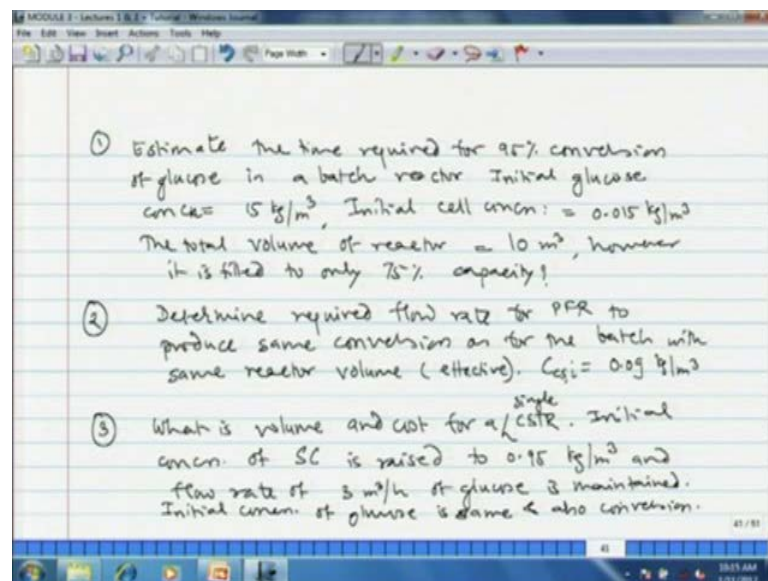 MODULE 3 - Lectures 1 & 2 + Tutorial - Windows Journal
File Edit View Insert Actions Tools Help
Page Width
① Estimate the time required for 95% conversion
of glucose in a batch reactor Initial glucose
concn= 15 kg/m³, Initial cell concn: = 0.015 kg/m³
The total volume of reactor = 10 m³, however
it is filled to only 75% capacity!
② Determine required flow rate for PFR to
produce same conversion as for the batch with
same reactor volume (effective). = 0.09 kg/m³
③ What is volume and cost for a single CSTR. Initial
concn. of SC is raised to 0.95 kg/m³ and
flow rate of 3 m³/h of glucose is maintained.
Initial concn. of glucose is same & also conversion.
41/51
41
10:15 AM